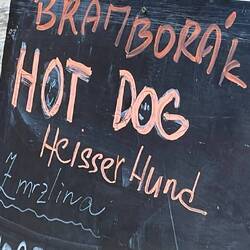 BRAMBORÁK
HOT DOG
Heisser Hund
Zmrzlina